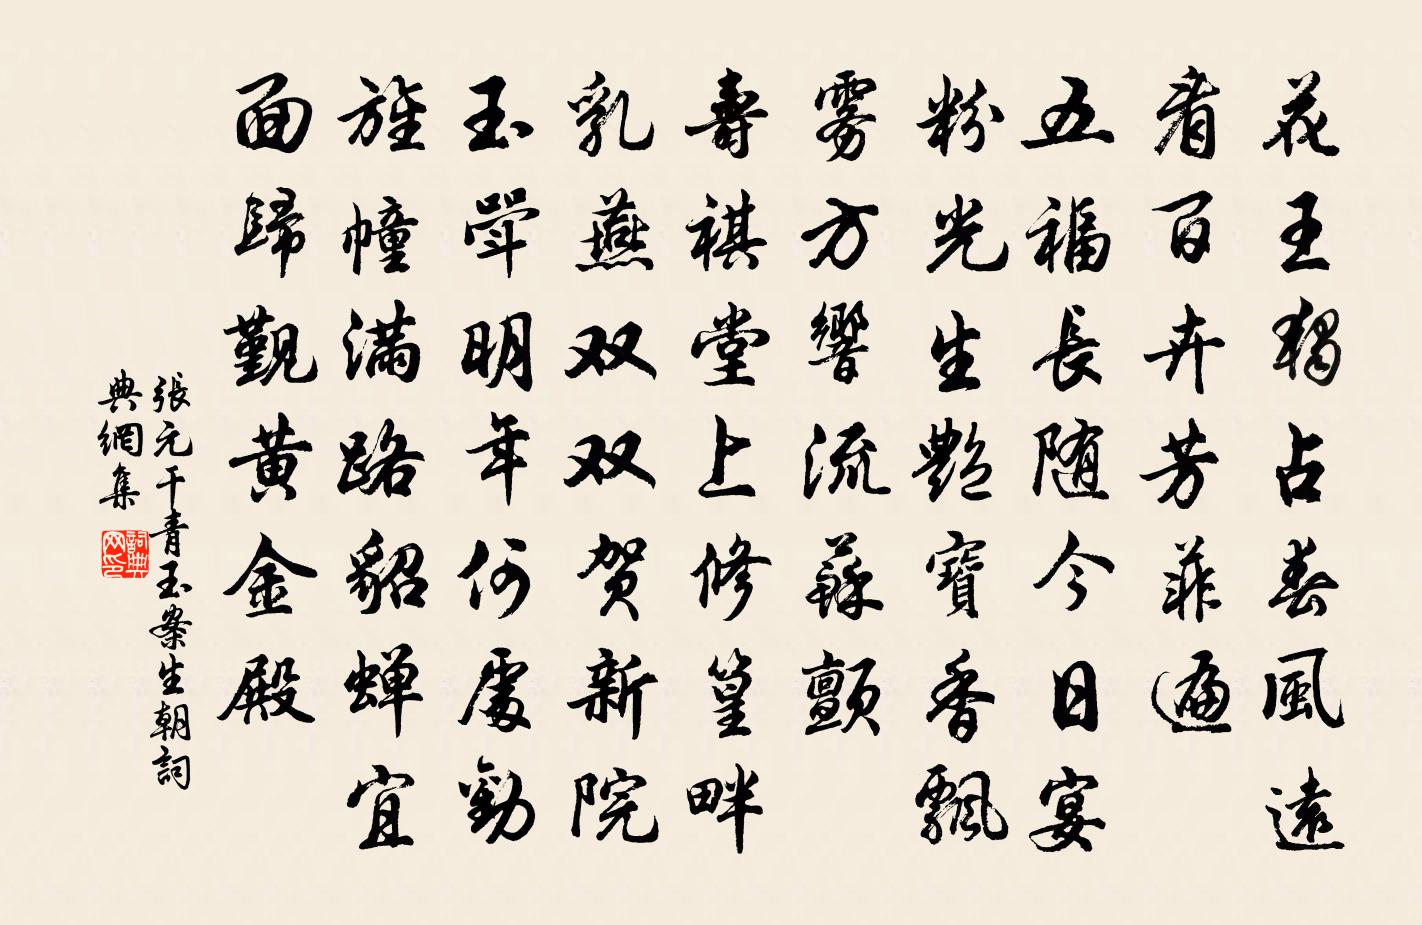 花王獨占春風遠
看百卉芳菲遍
五福長随今日宴
粉光生艷寶香飄
雾方響流蘇顫
壽祺堂上修篁畔
乳燕双双贺新院
玉斝明年何處勸
旌幢滿路貂蝉宜
面歸覲黄金殿
張元干青玉案生朝詞
典網集
詞典
网印